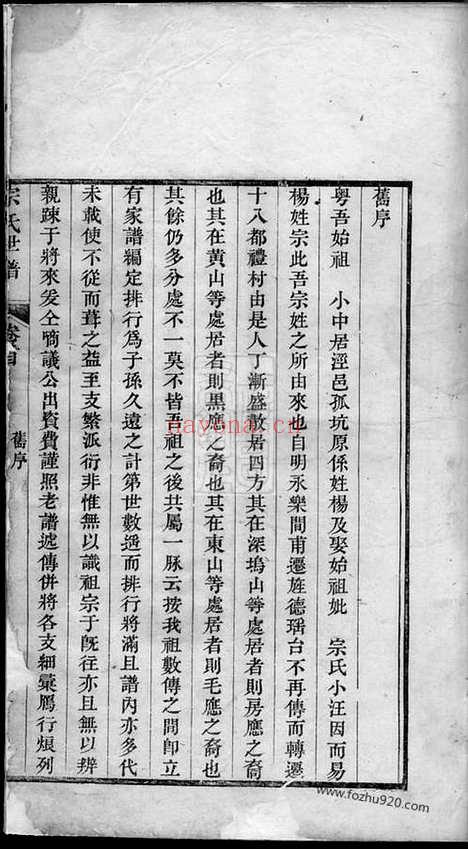 舊序
粤吾始祖　小中居涇邑孤坑原係姓楊及娶始祖妣　宗氏小汪因而易
楊姓宗此吾宗姓之所由來也自明永樂間甫遷旌德瑶台不再傳而轉遷
十八都禮村由是人丁漸盛散居四方其在深塢山等處居者則房應之裔
也其在黄山等處居者則黑應之裔也其在東山等處居者則毛應之裔也
其餘仍多分處不一莫不皆吾祖之後共屬一脉云按我祖數傳之間卽立
有家譜編定排行爲子孫久遠之計第世數遥而排行將滿且譜內亦多代
未載使不從而葺之益至支繁派衍非惟無以識祖宗于旣往亦且無以辨
親踈于將來爰仝啇議公出資費謹照老譜遞傳併將各支細彙鴈行煩列
宗氏世譜
卷首
舊序
nayona.cn
www.fozhu920.com